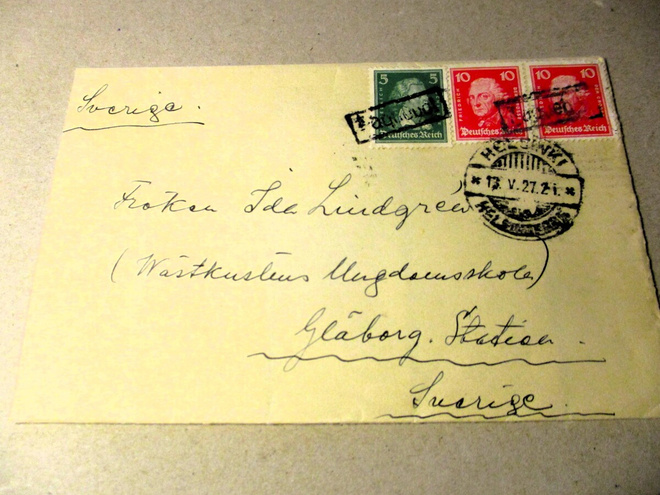 Sverige.
5 5
Deutsches Reich
10 10
FRIEDRICH
Deutsches Reich
10 10
FRIEDRICH
Deutsches Reich
HELSINKI
13.V.27.21.
HELSINGFORS
Fröken Ida Lindgren
(Wästkustens Ungdomsskola)
Gläborg. Station.
Sverige.